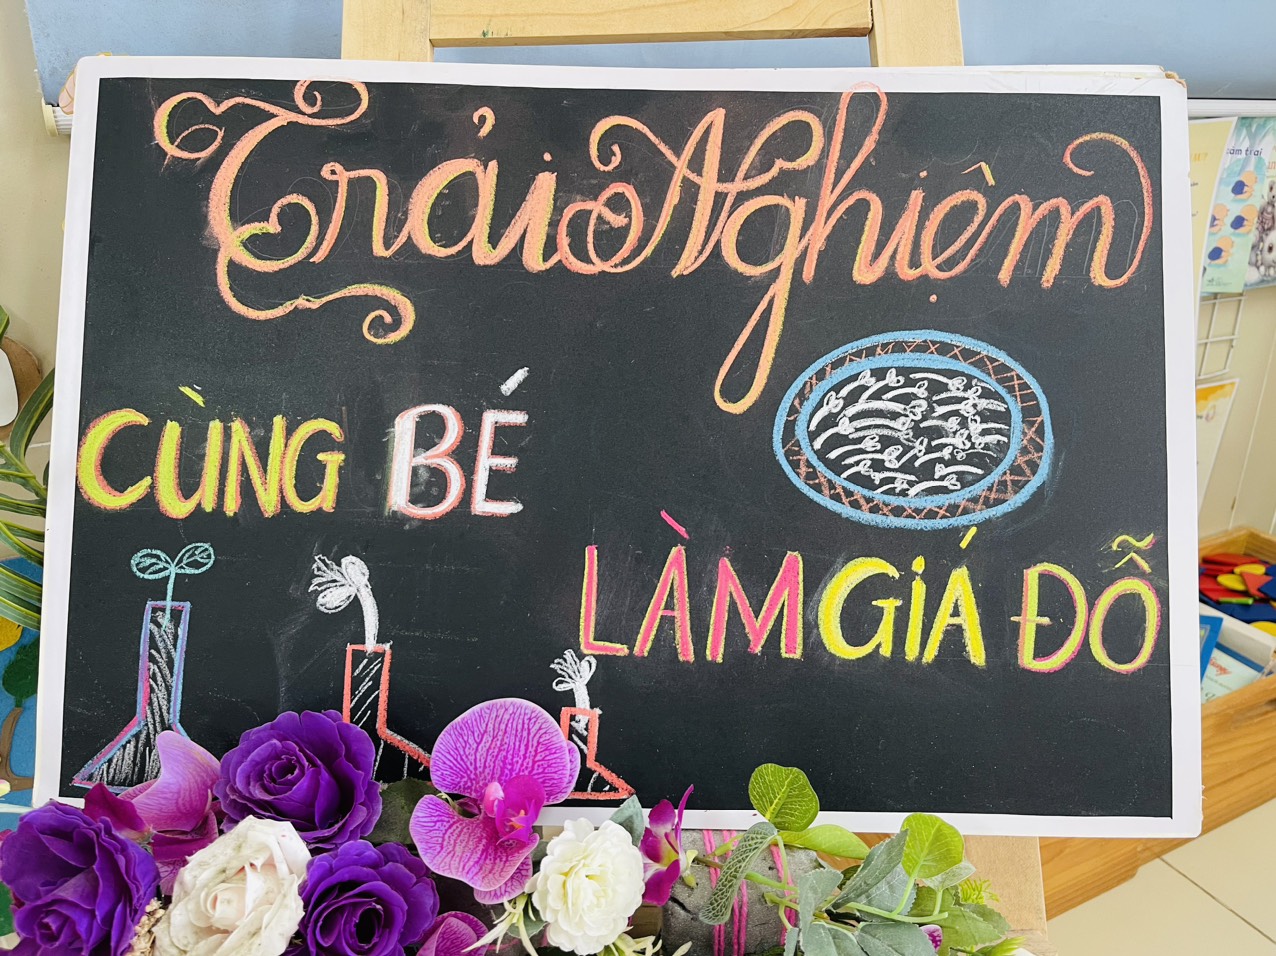 Trải Nghiệm
CÙNG BÉ
LÀM GIÁ ĐỖ